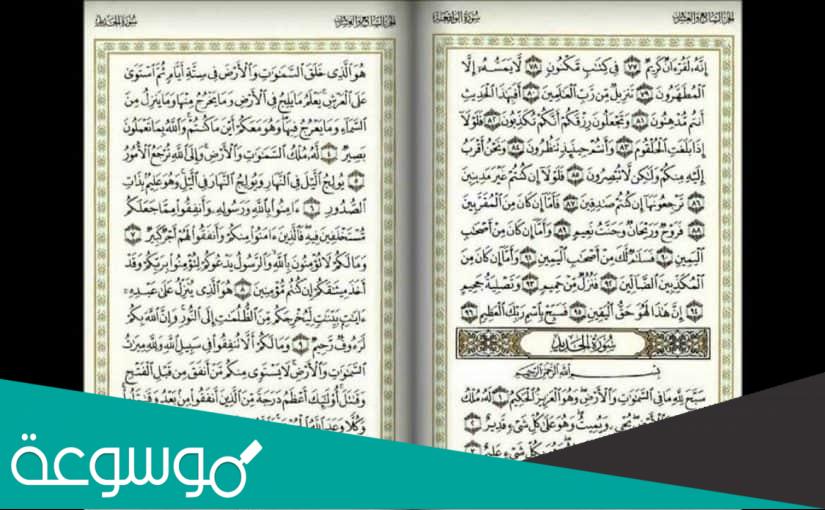 الجزء السابع والعشرون سورة الواقعة
إِنَّهُۥ لَقُرْءَانٌ كَرِيمٌ ٧٧ فِى كِتَٰبٍ مَّكْنُونٍ ٧٨ لَّا يَمَسُّهُۥٓ إِلَّا
ٱلْمُطَهَّرُونَ ٧٩ تَنزِيلٌ مِّن رَّبِّ ٱلْعَٰلَمِينَ ٨٠ أَفَبِهَٰذَا ٱلْحَدِيثِ
أَنتُم مُّدْهِنُونَ ٨١ وَتَجْعَلُونَ رِزْقَكُمْ أَنَّكُمْ تُكَذِّبُونَ ٨٢ فَلَوْلَآ
إِذَا بَلَغَتِ ٱلْحُلْقُومَ ٨٣ وَأَنتُمْ حِينَئِذٍ تَنظُرُونَ ٨٤ وَنَحْنُ أَقْرَبُ
إِلَيْهِ مِنكُمْ وَلَٰكِن لَّا تُبْصِرُونَ ٨٥ فَلَوْلَآ إِن كُنتُمْ غَيْرَ مَدِينِينَ
٨٦ تَرْجِعُونَهَآ إِن كُنتُمْ صَٰدِقِينَ ٨٧ فَأَمَّآ إِن كَانَ مِنَ ٱلْمُقَرَّبِينَ
٨٨ فَرَوْحٌ وَرَيْحَانٌ وَجَنَّتُ نَعِيمٍ ٨٩ وَأَمَّآ إِن كَانَ مِنْ أَصْحَٰبِ
ٱلْيَمِينِ ٩٠ فَسَلَٰمٌ لَّكَ مِنْ أَصْحَٰبِ ٱلْيَمِينِ ٩١ وَأَمَّآ إِن كَانَ مِنَ
ٱلْمُكَذِّبِينَ ٱلضَّآلِّينَ ٩٢ فَنُزُلٌ مِّنْ حَمِيمٍ ٩٣ وَتَصْلِيَةُ جَحِيمٍ
٩٤ إِنَّ هَٰذَا لَهُوَ حَقُّ ٱلْيَقِينِ ٩٥ فَسَبِّحْ بِٱسْمِ رَبِّكَ ٱلْعَظِيمِ ٩٦
سورة الحديد
بِسْمِ ٱللَّهِ ٱلرَّحْمَٰنِ ٱلرَّحِيمِ
سَبَّحَ لِلَّهِ مَا فِى ٱلسَّمَٰوَٰتِ وَٱلْأَرْضِ وَهُوَ ٱلْعَزِيزُ ٱلْحَكِيمُ ١ لَهُۥ مُلْكُ
وَٱلْأَرْضِ يُحْىِۦ وَيُمِيتُ وَهُوَ عَلَىٰ كُلِّ شَىْءٍ قَدِيرٌ ٢
بِكُلِّ شَىْءٍ عَلِيمٌ ٣
الجزء السابع والعشرون سورة الحديد
هُوَ ٱلَّذِى خَلَقَ ٱلسَّمَٰوَٰتِ وَٱلْأَرْضَ فِى سِتَّةِ أَيَّامٍ ثُمَّ ٱسْتَوَىٰ
عَلَى ٱلْعَرْشِ يَعْلَمُ مَا يَلِجُ فِى ٱلْأَرْضِ وَمَا يَخْرُجُ مِنْهَا وَمَا يَنزِلُ مِنَ
ٱلسَّمَآءِ وَمَا يَعْرُجُ فِيهَا وَهُوَ مَعَكُمْ أَيْنَ مَا كُنتُمْ وَٱللَّهُ بِمَا تَعْمَلُونَ
بَصِيرٌ ٤ لَّهُۥ مُلْكُ ٱلسَّمَٰوَٰتِ وَٱلْأَرْضِ وَإِلَى ٱللَّهِ تُرْجَعُ ٱلْأُمُورُ
٥ يُولِجُ ٱلَّيْلَ فِى ٱلنَّهَارِ وَيُولِجُ ٱلنَّهَارَ فِى ٱلَّيْلِ وَهُوَ عَلِيمٌۢ بِذَاتِ
ٱلصُّدُورِ ٦ ءَامِنُوا۟ بِٱللَّهِ وَرَسُولِهِۦ وَأَنفِقُوا۟ مِمَّا جَعَلَكُم
مُّسْتَخْلَفِينَ فِيهِ فَٱلَّذِينَ ءَامَنُوا۟ مِنكُمْ وَأَنفَقُوا۟ لَهُمْ أَجْرٌ كَبِيرٌ ٧
وَمَا لَكُمْ لَا تُؤْمِنُونَ بِٱللَّهِ وَٱلرَّسُولُ يَدْعُوكُمْ لِتُؤْمِنُوا۟ بِرَبِّكُمْ وَقَدْ
أَخَذَ مِيثَٰقَكُمْ إِن كُنتُم مُّؤْمِنِينَ ٨ هُوَ ٱلَّذِى يُنَزِّلُ عَلَىٰ عَبْدِهِۦٓ
ءَايَٰتٍۭ بَيِّنَٰتٍ لِّيُخْرِجَكُم مِّنَ ٱلظُّلُمَٰتِ إِلَى ٱلنُّورِ وَإِنَّ ٱللَّهَ بِكُمْ
لَرَءُوفٌ رَّحِيمٌ ٩ وَمَا لَكُمْ أَلَّا تُنفِقُوا۟ فِى سَبِيلِ ٱللَّهِ وَلِلَّهِ مِيرَٰثُ
ٱلسَّمَٰوَٰتِ وَٱلْأَرْضِ لَا يَسْتَوِى مِنكُم مَّنْ أَنفَقَ مِن قَبْلِ ٱلْفَتْحِ
وَقَٰتَلَ أُو۟لَٰٓئِكَ أَعْظَمُ دَرَجَةً مِّنَ ٱلَّذِينَ أَنفَقُوا۟ مِنۢ بَعْدُ وَقَٰتَلُوا۟
وَكُلًّا وَعَدَ ٱللَّهُ
موسوعة